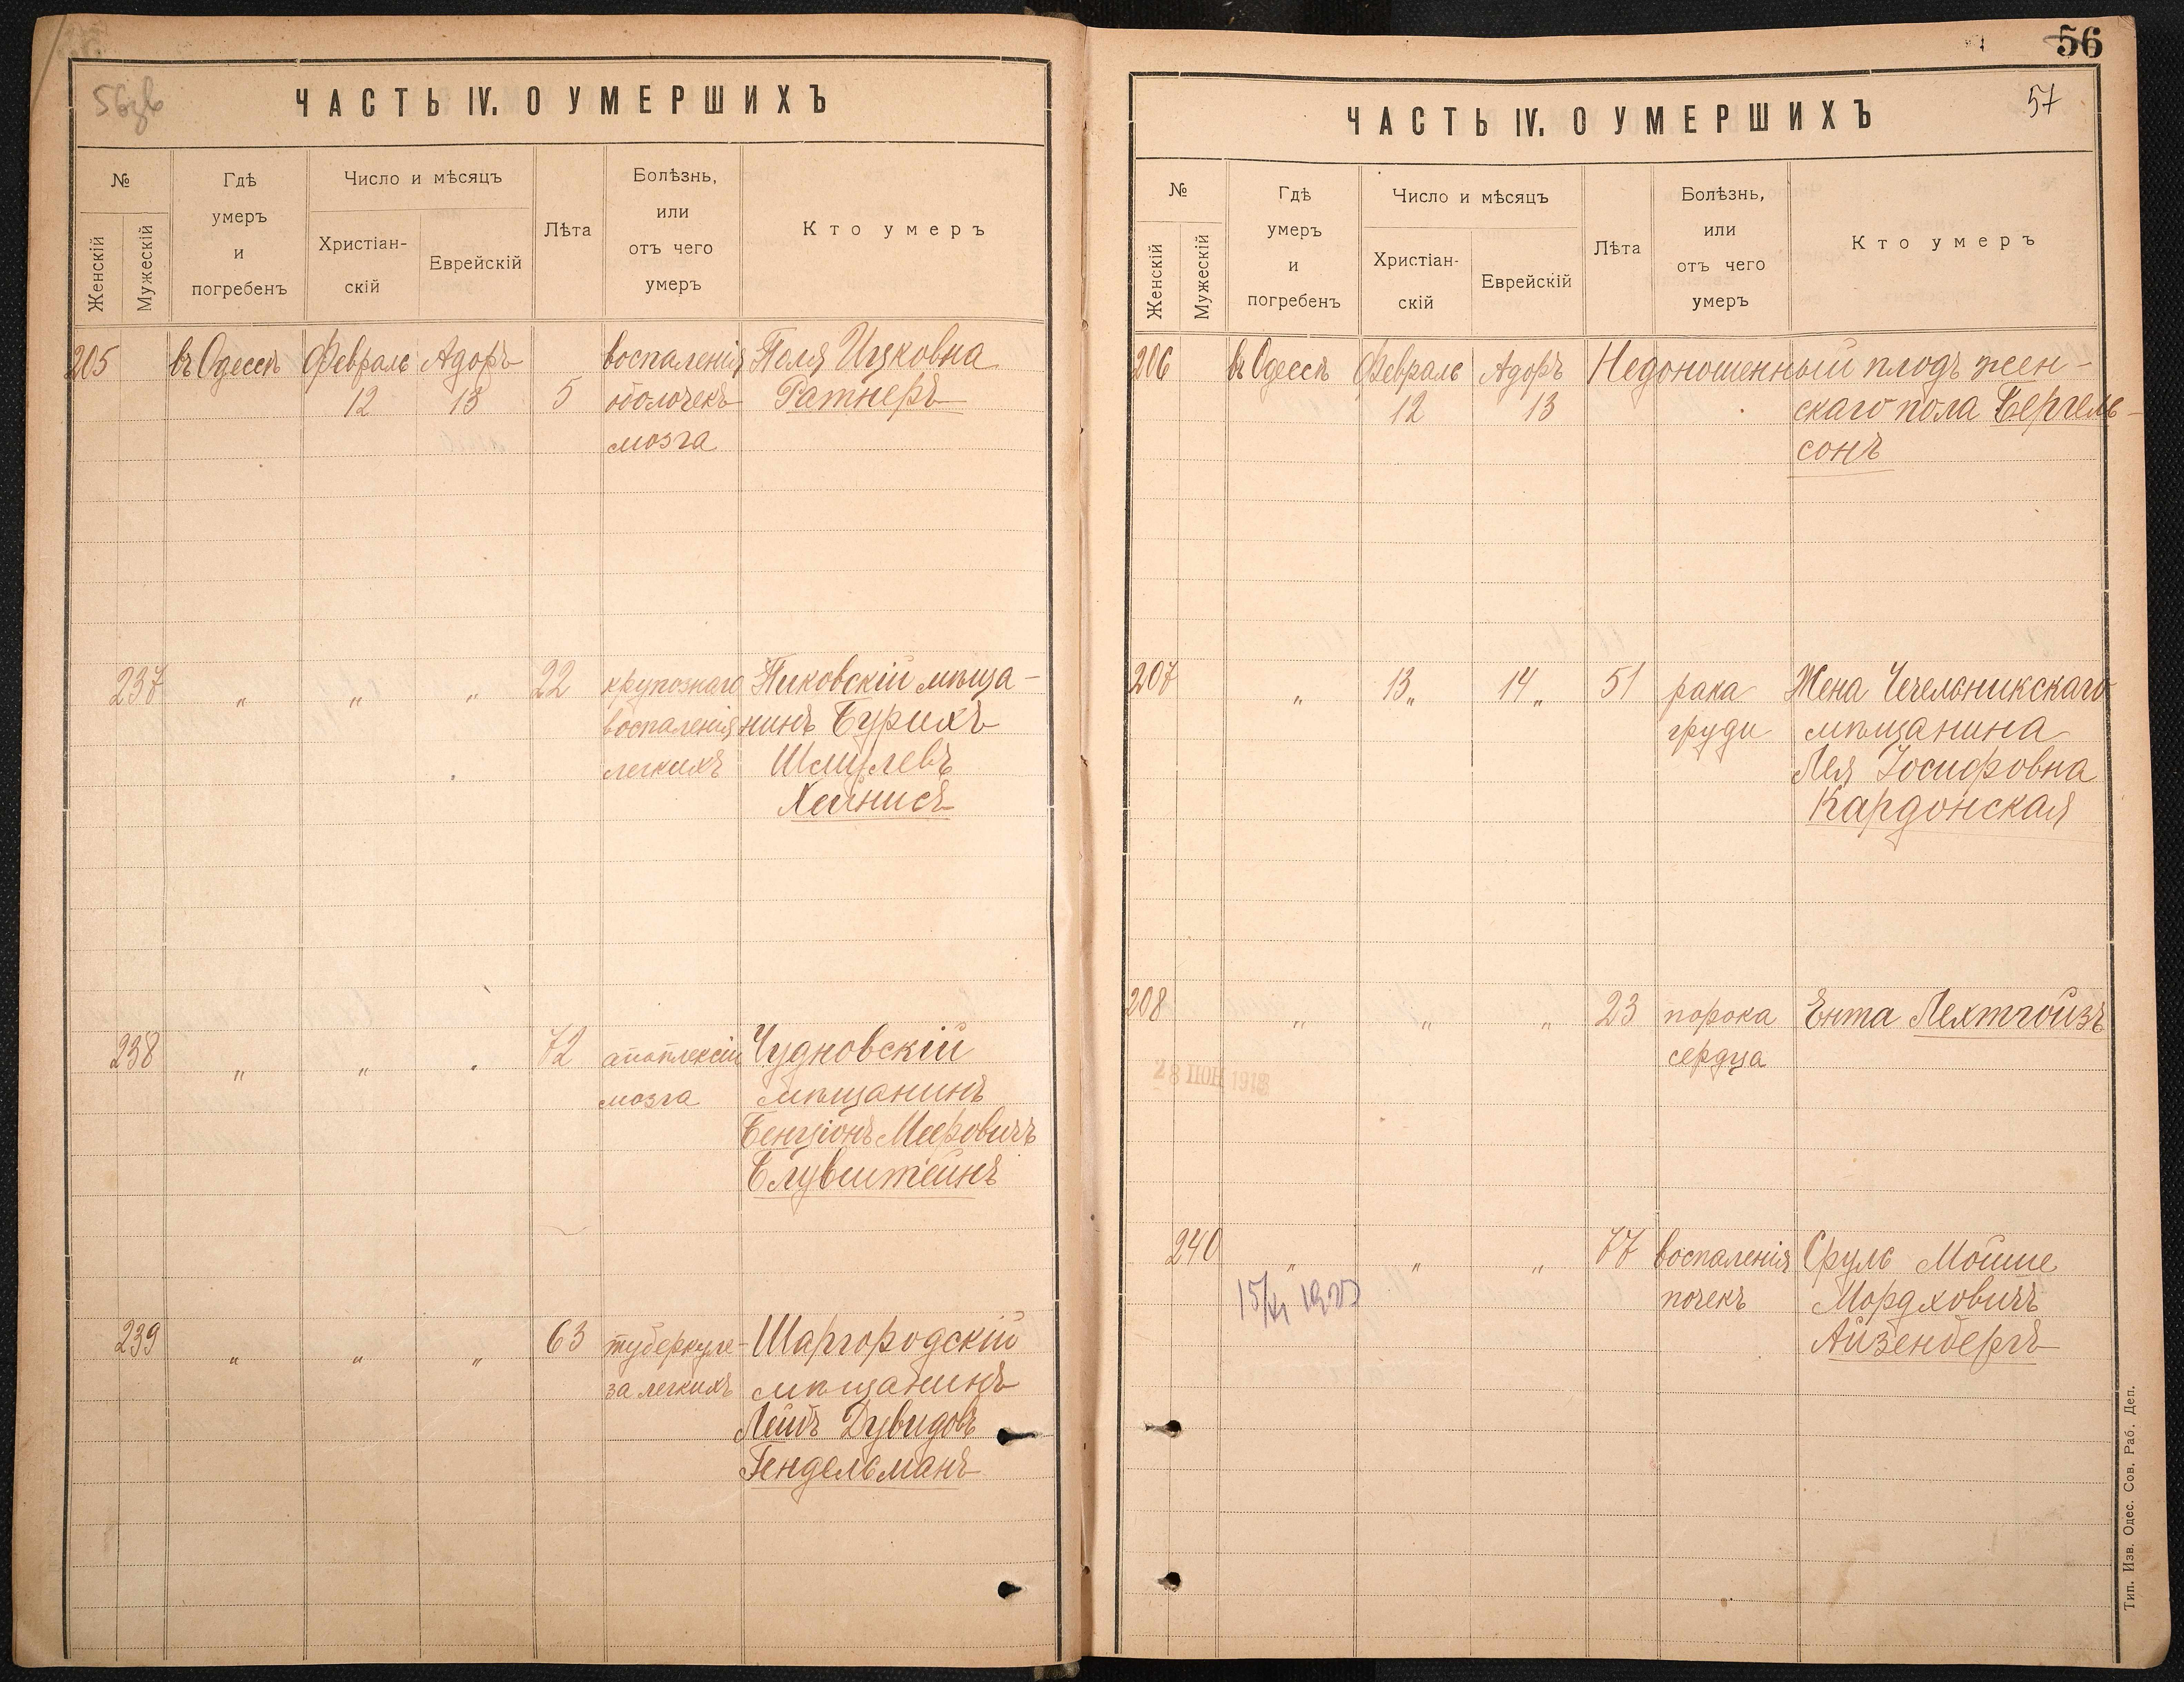 56зв
ЧАСТЬ IV. О УМЕРШИХЪ
№
Женскій
Мужескій
Гдѣ
умеръ
и
погребенъ
Число и мѣсяцъ
Христіан-
скій
Еврейскій
Лѣта
Болѣзнь,
или
отъ чего
умеръ
Кто умеръ
205 въ Одессѣ Февраль Адоръ воспаленія Поля Ицковна
12 13 5 оболочекъ Ратнеръ
мозга
237 " " " 22 крупознаго Пиковскій мѣща-
воспаленія нинъ Бурихъ
легкихъ Шмулевъ
Хейнисъ
238 " " " 72 апоплексіи Чудновскій
мозга мѣщанинъ
Бенціонъ Мееровичъ
Блувштейнъ
239 " " " 63 туберкуле- Шаргородскій
за легкихъ мѣщанинъ
Лейбъ Дувидовъ
Гендельманъ
56
57
ЧАСТЬ IV. О УМЕРШИХЪ
№
Женскій
Мужескій
Гдѣ
умеръ
и
погребенъ
Число и мѣсяцъ
Христіан-
скій
Еврейскій
Лѣта
Болѣзнь,
или
отъ чего
умеръ
Кто умеръ
206 въ Одессѣ Февраль Адоръ Недоношенный плодъ жен-
12 13 скаго пола Бергель-
сонъ
207 " 13 " 14 " 51 рака Жена Чечельникскаго
груди мѣщанина
Лея Іосифовна
Кардонская
208 " " " 23 порока Ента Лехтгойзъ
сердца
240 " " " 77 воспаленія Сруль Мойше
почекъ Мордховичъ
Айзенбергъ
Тип. Изв. Одес. Сов. Раб. Деп.